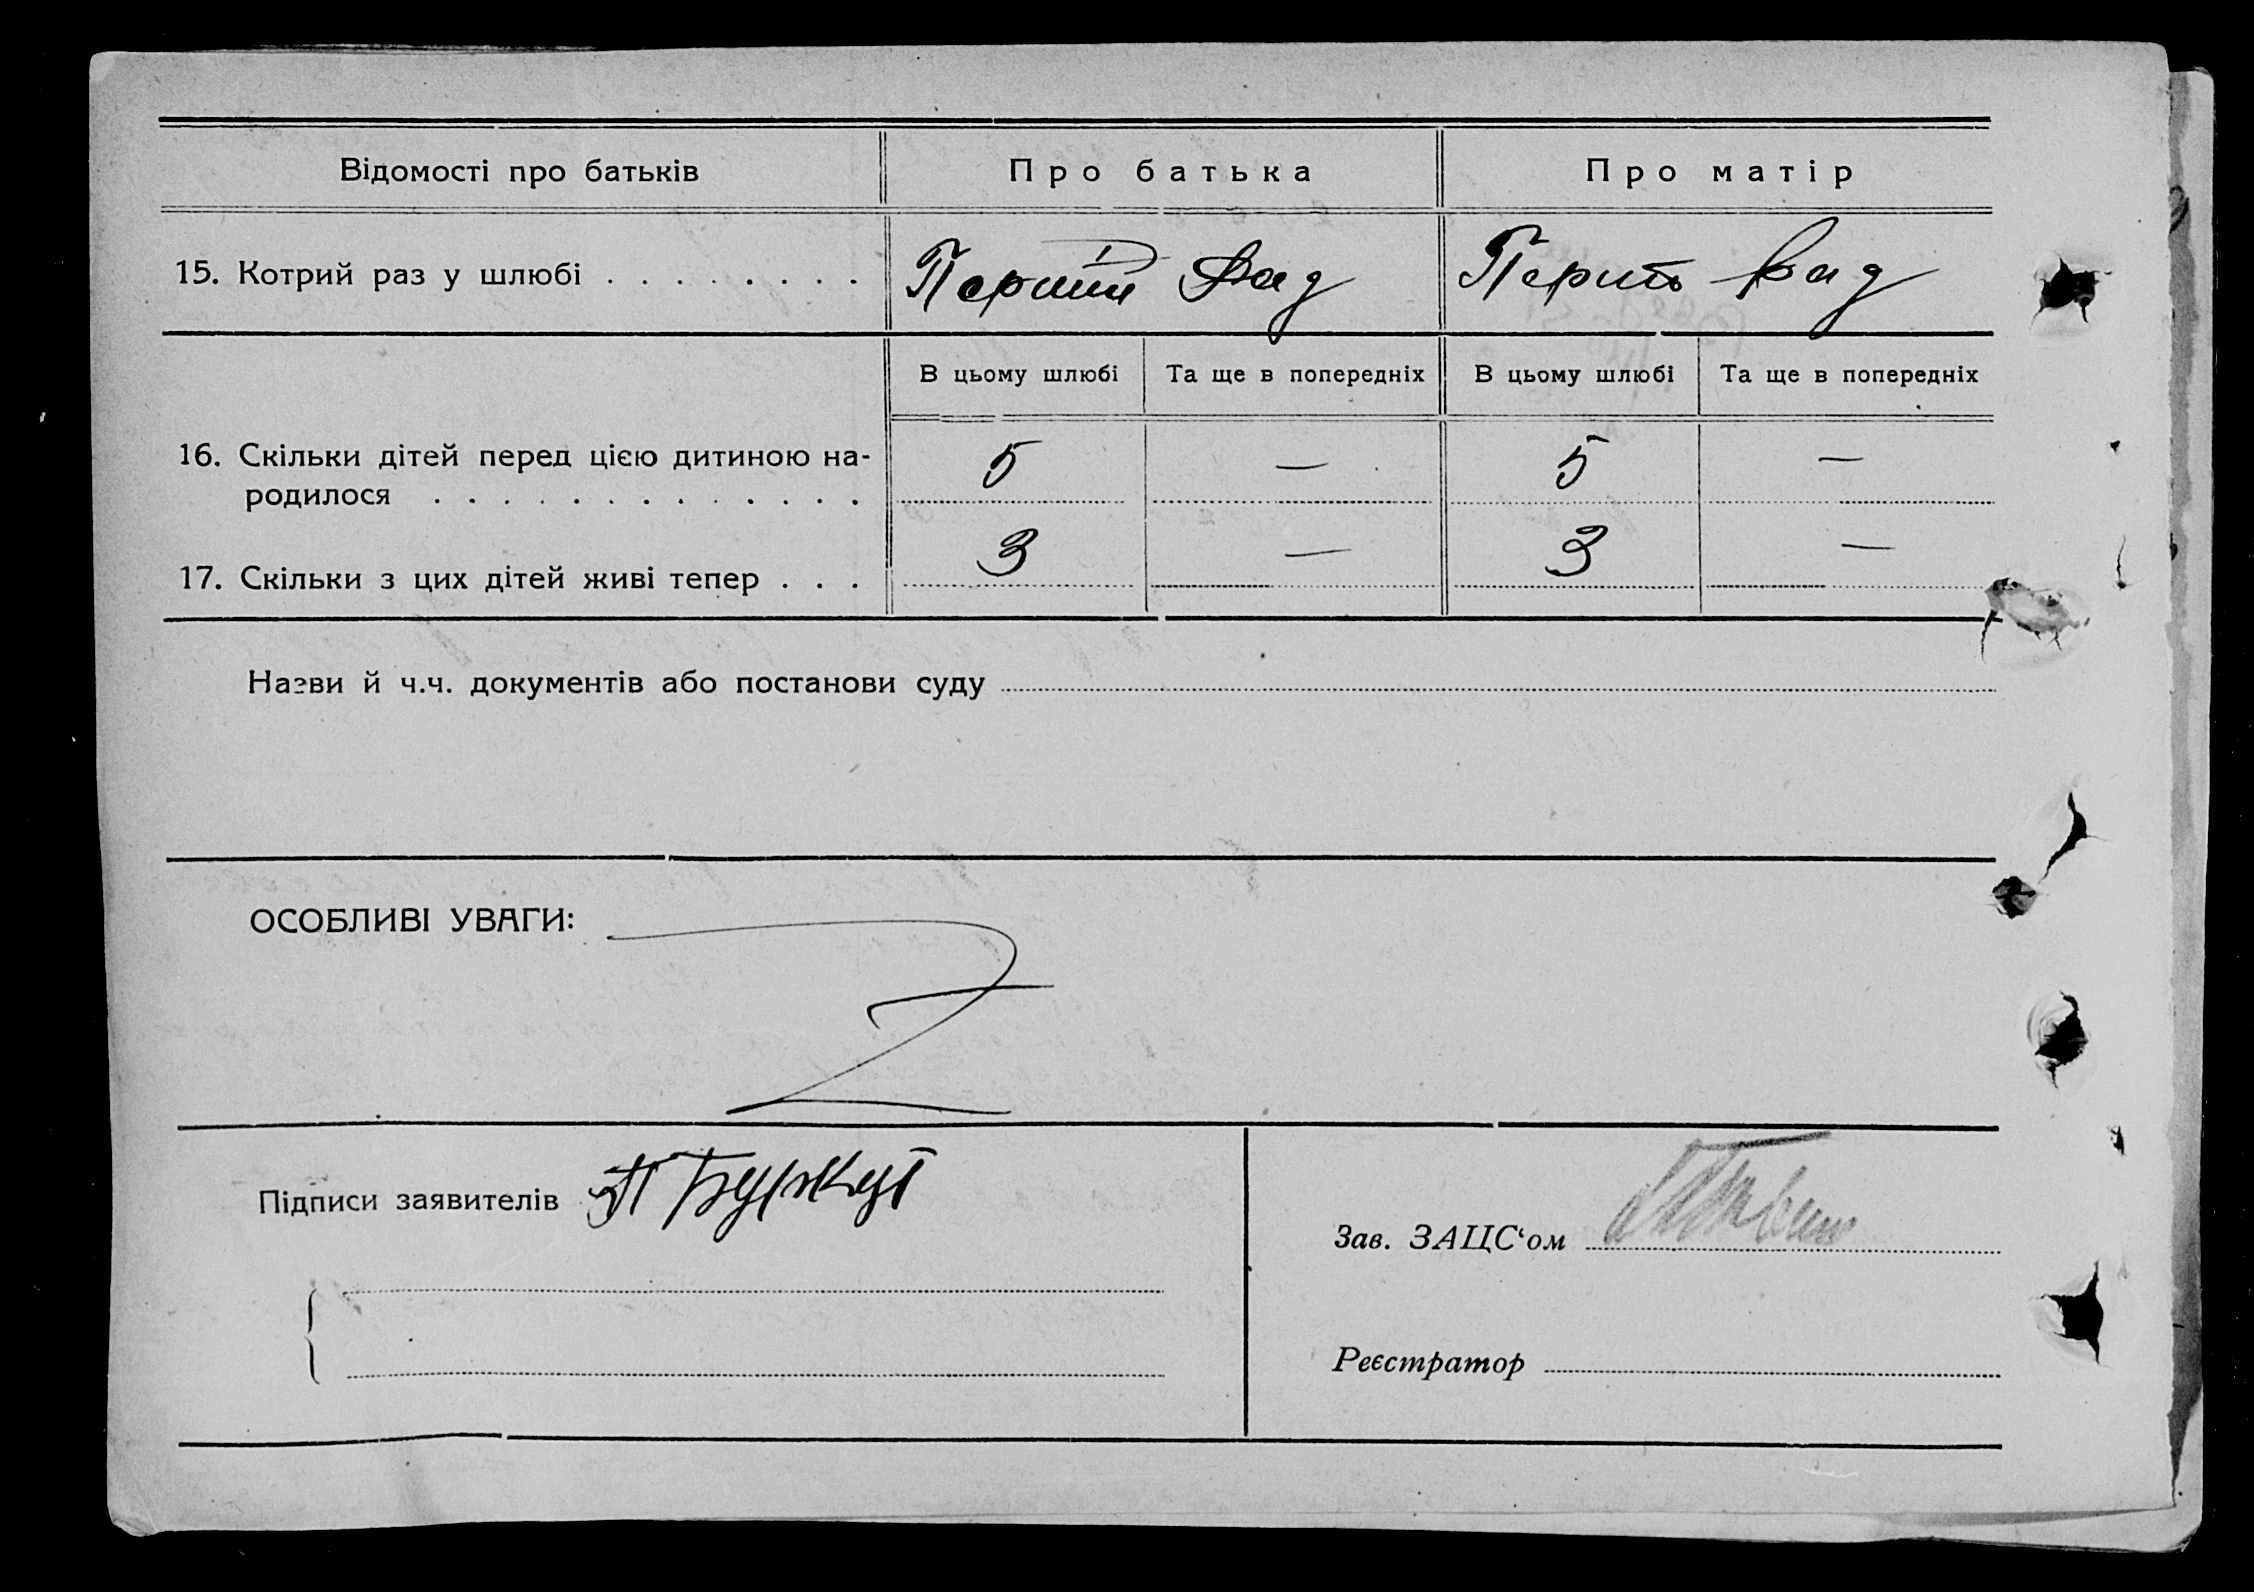 Відомості про батьків Про батька Про матір
15. Котрий раз у шлюбі . . . . . . . . Перший Раз Перший Раз
В цьому шлюбі Та ще в попередніх В цьому шлюбі Та ще в попередніх
16. Скільки дітей перед цією дитиною на-
родилося . . . . . . . . . . . . . 5 — 5 —
17. Скільки з цих дітей живі тепер . . . 3 — 3 —
Назви й ч.ч. документів або постанови суду
ОСОБЛИВІ УВАГИ:
Підписи заявителів П Буркут
Зав. ЗАЦС‘ом
Реєстратор